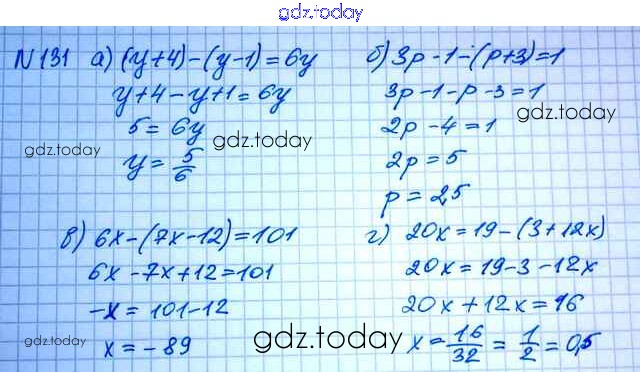 gdz.today
N131 а) (y+4)-(y-1)=6y
y+4-y+1=6y
5=6y
y=5/6
gdz.today
gdz.today
б) 3p-1-(p+3)=1
3p-1-p-3=1
2p-4=1
2p=5
p=2,5
gdz.today
в) 6x-(7x-12)=101
6x-7x+12=101
-x=101-12
x=-89
gdz.today
gdz.today
г) 20x=19-(3+12x)
20x=19-3-12x
20x+12x=16
x=16/32=1/2=0,5